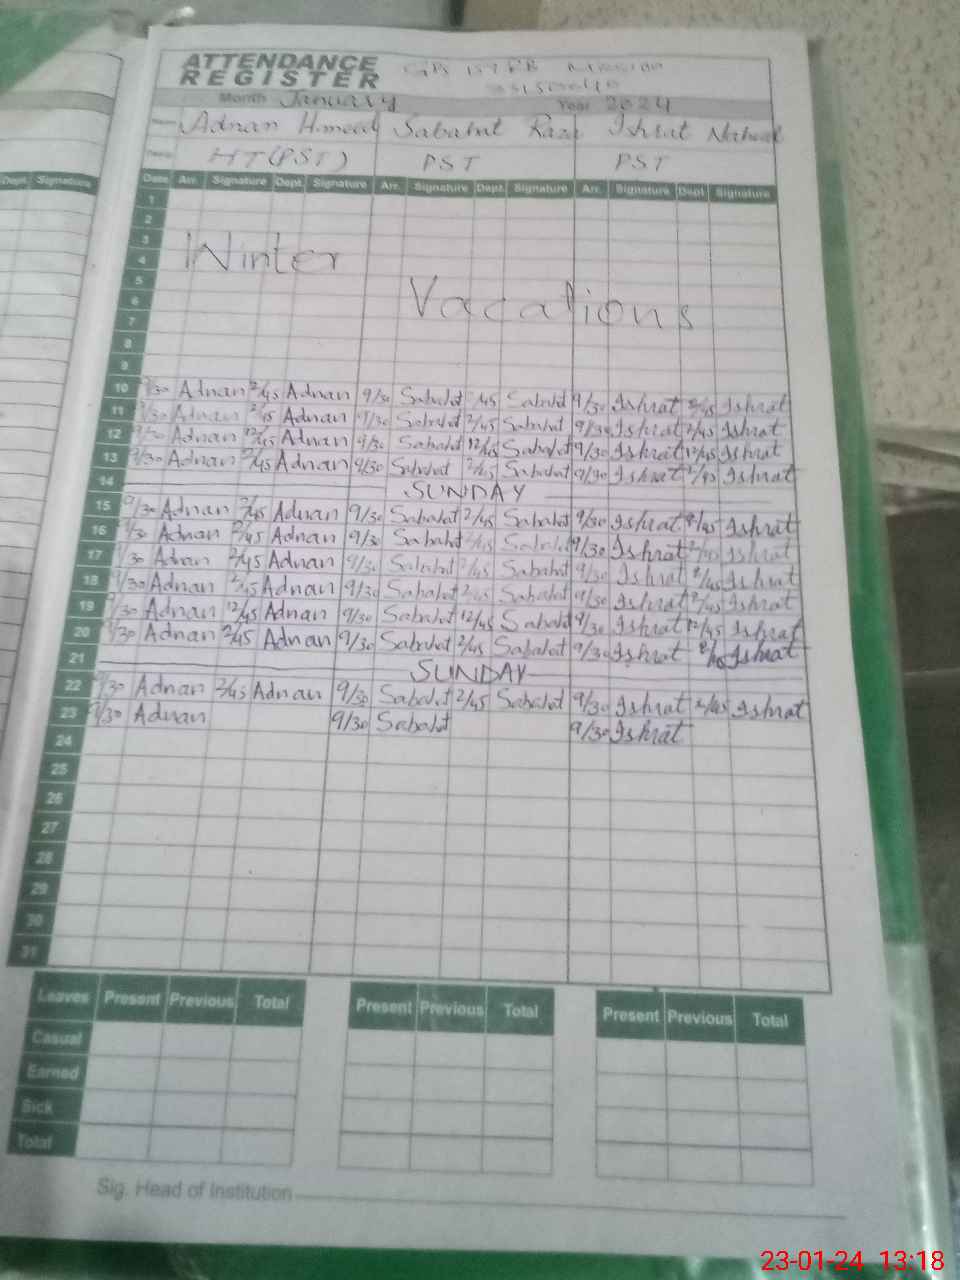 ATTENDANCE
REGISTER
GPS 157 EB
Month January Year 2024
Name Adnan Hameed Sabahat Raza Ishrat Naheed
HT (PST) PST PST
Dept. Signature
Date Arr. Signature Dept. Signature Arr. Signature Dept. Signature Arr. Signature Dept. Signature
1
2
3
4
Winter
5
6
Vacations
7
8
9
10 9/30 Adnan 2/45 Adnan 9/30 Sabahat 2/45 Sabahat 9/30 Ishrat 2/45 Ishrat
11 9/30 Adnan 2/45 Adnan 9/30 Sabahat 2/45 Sabahat 9/30 Ishrat 2/45 Ishrat
12 9/30 Adnan 12/45 Adnan 9/30 Sabahat 12/45 Sabahat 9/30 Ishrat 12/45 Ishrat
13 9/30 Adnan 2/45 Adnan 9/30 Sabahat 2/45 Sabahat 9/30 Ishrat 2/45 Ishrat
14 SUNDAY
15 9/30 Adnan 2/45 Adnan 9/30 Sabahat 2/45 Sabahat 9/30 Ishrat 2/45 Ishrat
16 9/30 Adnan 2/45 Adnan 9/30 Sabahat 2/45 Sabahat 9/30 Ishrat 2/45 Ishrat
17 9/30 Adnan 2/45 Adnan 9/30 Sabahat 2/45 Sabahat 9/30 Ishrat 2/45 Ishrat
18 9/30 Adnan 2/45 Adnan 9/30 Sabahat 2/45 Sabahat 9/30 Ishrat 2/45 Ishrat
19 9/30 Adnan 12/45 Adnan 9/30 Sabahat 12/45 Sabahat 9/30 Ishrat 12/45 Ishrat
20 9/30 Adnan 2/45 Adnan 9/30 Sabahat 2/45 Sabahat 9/30 Ishrat Ishrat
21 SUNDAY
22 9/30 Adnan 2/45 Adnan 9/30 Sabahat 2/45 Sabahat 9/30 Ishrat 2/45 Ishrat
23 9/30 Adnan 9/30 Sabahat 9/30 Ishrat
24
25
26
27
28
29
30
31
Leaves Present Previous Total Present Previous Total Present Previous Total
Casual
Earned
Sick
Total
Sig. Head of Institution
23-01-24 13:18